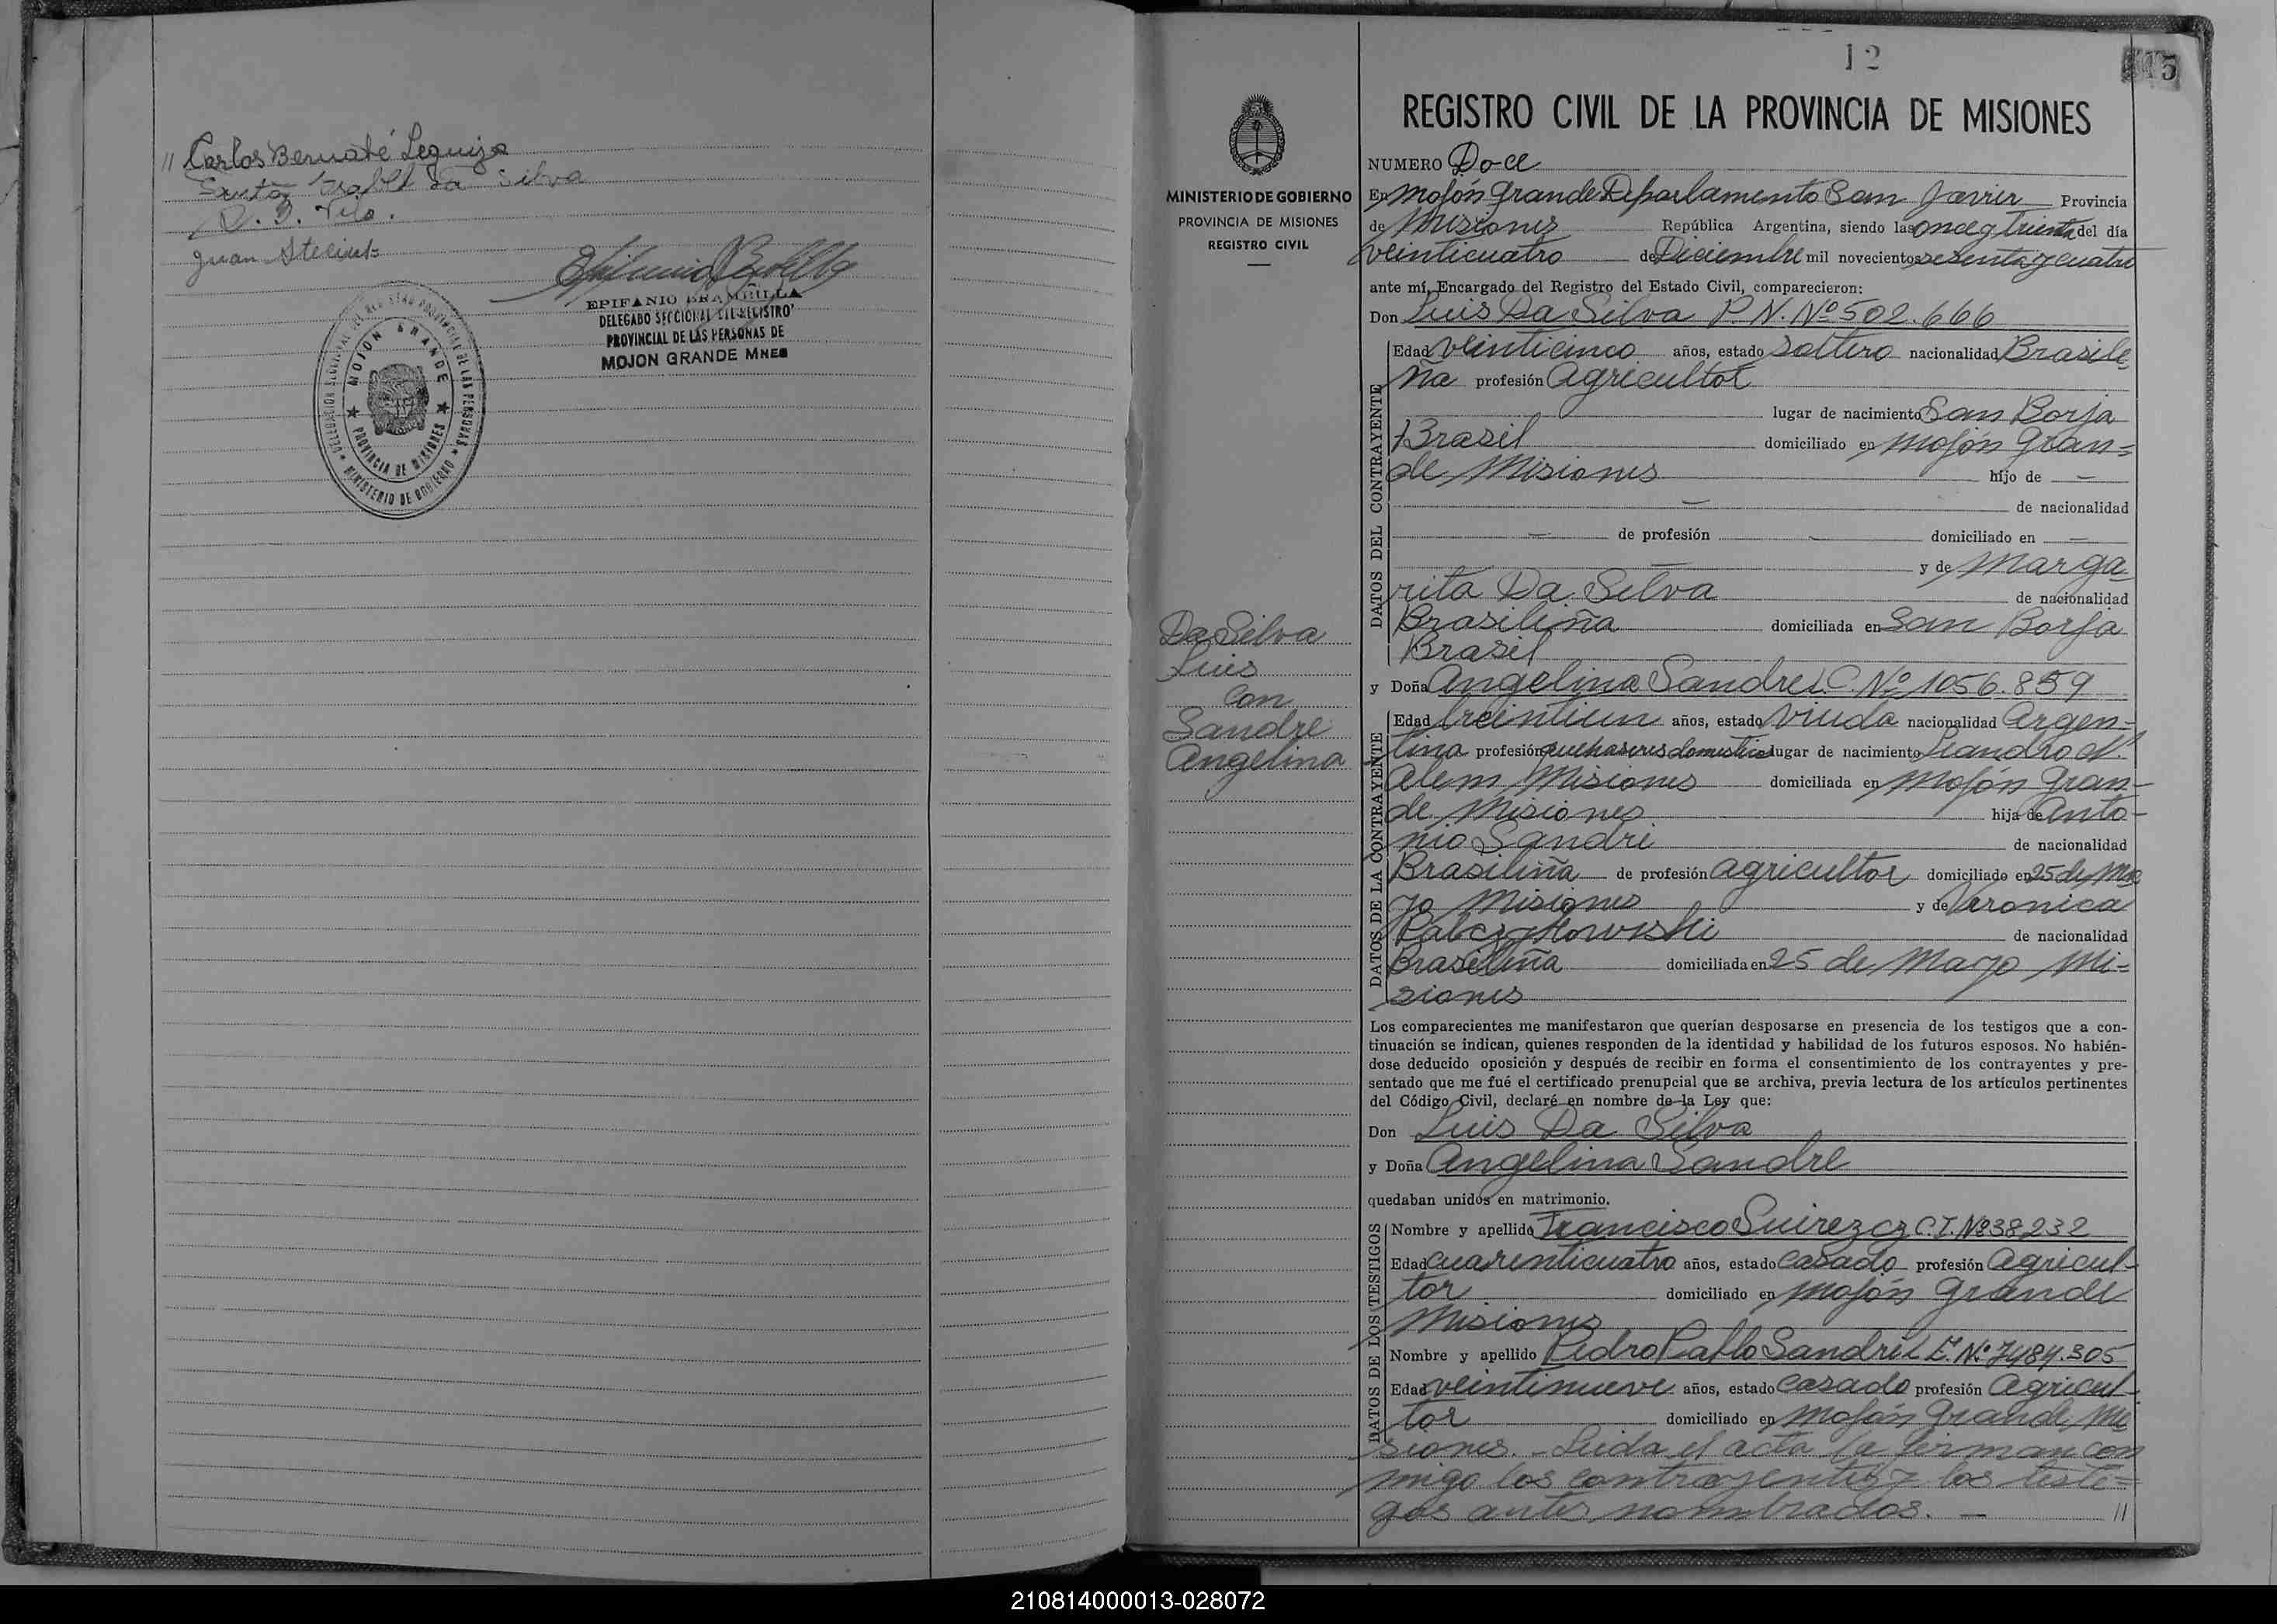 // Carlos Bernabé Leguiza
Isabel Da Silva
Juan
EPIFANIO BRAMBILLA
DELEGADO SECCIONAL DEL REGISTRO
PROVINCIAL DE LAS PERSONAS DE
MOJON GRANDE MNES
DELEGACION SECCIONAL DEL REGISTRO PROVINCIAL DE LAS PERSONAS
MINISTERIO DE GOBIERNO
MOJON GRANDE
PROVINCIA DE MISIONES
12
15
MINISTERIO DE GOBIERNO
PROVINCIA DE MISIONES
REGISTRO CIVIL
Da Silva
Luis
con
Sandre
Angelina
REGISTRO CIVIL DE LA PROVINCIA DE MISIONES
NUMERO Doce
En Mojón Grande Departamento San Javier Provincia
de Misiones República Argentina, siendo las once y treinta del día
veinticuatro de Diciembre mil novecientos sesenta y cuatro
ante mí, Encargado del Registro del Estado Civil, comparecieron:
Don Luis Da Silva P. N. Nº 502.666
DATOS DEL CONTRAYENTE
Edad veinticinco años, estado soltero nacionalidad Brasile
ña profesión Agricultor
lugar de nacimiento San Borja
Brasil domiciliado en Mojón Gran=
de Misiones hijo de —
— de nacionalidad
— de profesión — domiciliado en —
— y de Marga
rita Da Silva de nacionalidad
Brasileña domiciliada en San Borja
Brasil
y Doña Angelina Sandre L.C. Nº 1056.859
DATOS DE LA CONTRAYENTE
Edad treintiun años, estado viuda nacionalidad Argen=
tina profesión quehaseres domestico lugar de nacimiento Leandro N.
Alem Misiones domiciliada en Mojón Gran-
de Misiones hija de Anto-
nio Sandri de nacionalidad
Brasileña de profesión agricultor domiciliado en 25 de Ma
yo Misiones y de Veronica
de nacionalidad
Brasileña domiciliada en 25 de Mayo Mi=
siones
Los comparecientes me manifestaron que querían desposarse en presencia de los testigos que a con-
tinuación se indican, quienes responden de la identidad y habilidad de los futuros esposos. No habién-
dose deducido oposición y después de recibir en forma el consentimiento de los contrayentes y pre-
sentado que me fué el certificado prenupcial que se archiva, previa lectura de los artículos pertinentes
del Código Civil, declaré en nombre de la Ley que:
Don Luis Da Silva
y Doña Angelina Sandre
quedaban unidos en matrimonio.
DATOS DE LOS TESTIGOS
Nombre y apellido Francisco C.I. Nº 38232
Edad cuarenticuatro años, estado casado profesión Agricul-
tor domiciliado en Mojón Grande
Misiones
Nombre y apellido Pedro Pablo Sandri L. E. Nº 7484.305
Edad veintinueve años, estado casado profesión Agricul-
tor domiciliado en Mojón Grande, Mi
siones. - Leida el acta la firman con
migo los contrayentes y los testi=
gos antes nombrados. — //
210814000013-028072